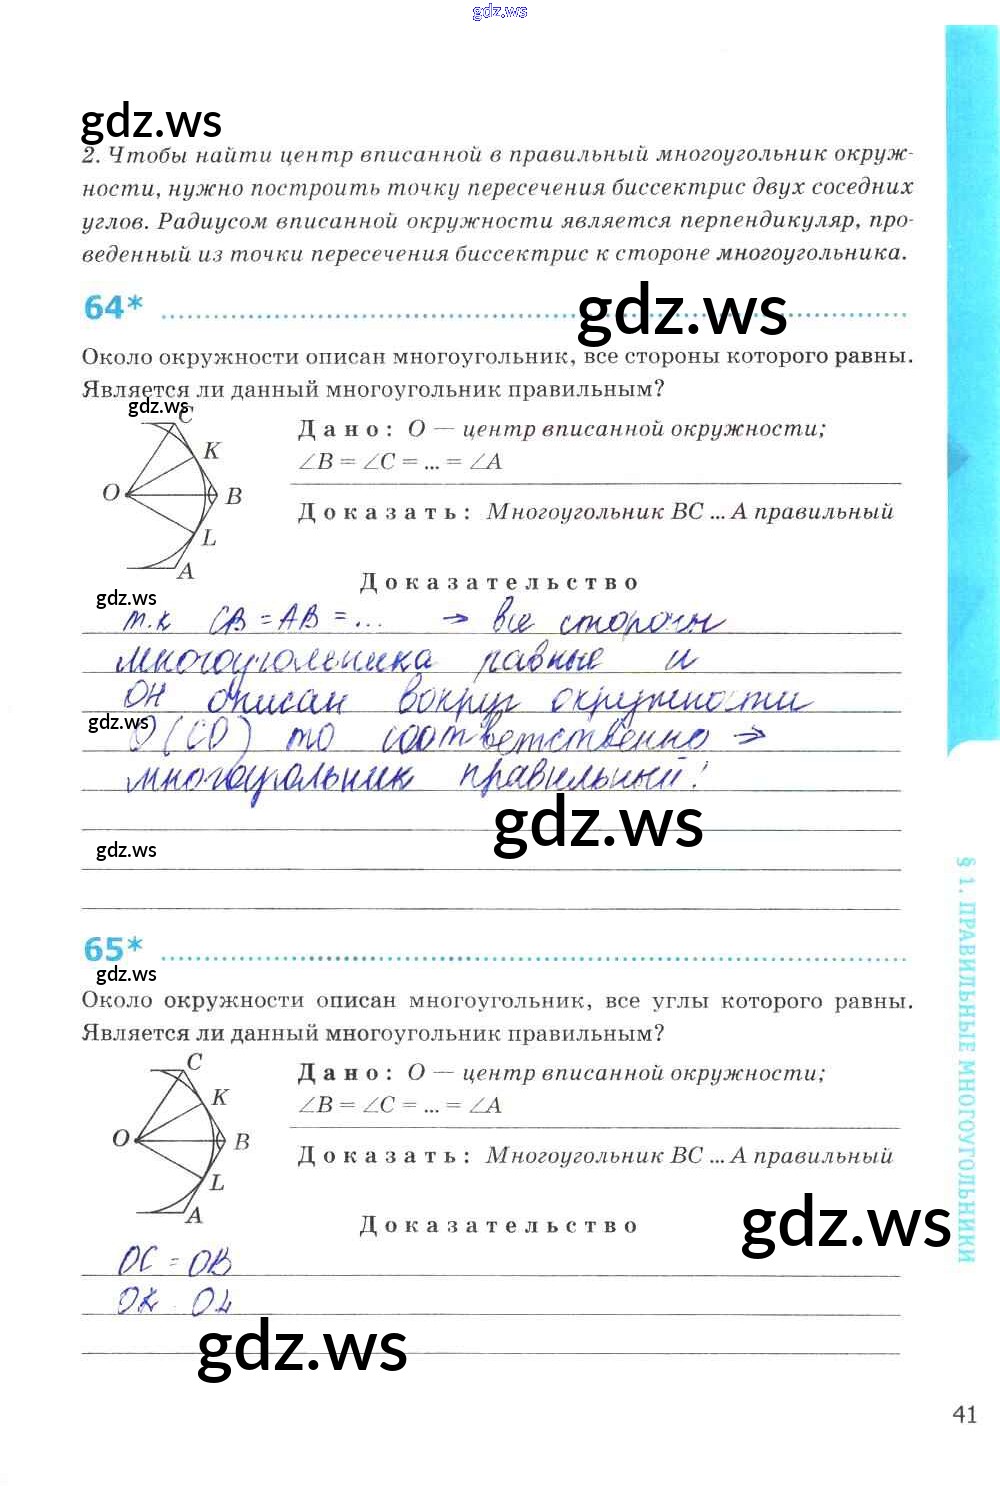 gdz.ws
gdz.ws
2. Чтобы найти центр вписанной в правильный многоугольник окруж-
ности, нужно построить точку пересечения биссектрис двух соседних
углов. Радиусом вписанной окружности является перпендикуляр, про-
веденный из точки пересечения биссектрис к стороне многоугольника.
64*
gdz.ws
Около окружности описан многоугольник, все стороны которого равны.
Является ли данный многоугольник правильным?
gdz.ws
C
K
O
B
L
A
Дано: O — центр вписанной окружности;
∠B = ∠C = ... = ∠A
Доказать: Многоугольник BC ... A правильный
Доказательство
gdz.ws
т.к CB = AB = ... → все стороны
многоугольника равные и
он описан вокруг окружности
gdz.ws
O(CD) то соответственно →
многоугольник правильный!
gdz.ws
gdz.ws
65*
gdz.ws
Около окружности описан многоугольник, все углы которого равны.
Является ли данный многоугольник правильным?
C
K
O
B
L
A
Дано: O — центр вписанной окружности;
∠B = ∠C = ... = ∠A
Доказать: Многоугольник BC ... A правильный
Доказательство
gdz.ws
OC = OB
OK OL
gdz.ws
§ 1. ПРАВИЛЬНЫЕ МНОГОУГОЛЬНИКИ
41